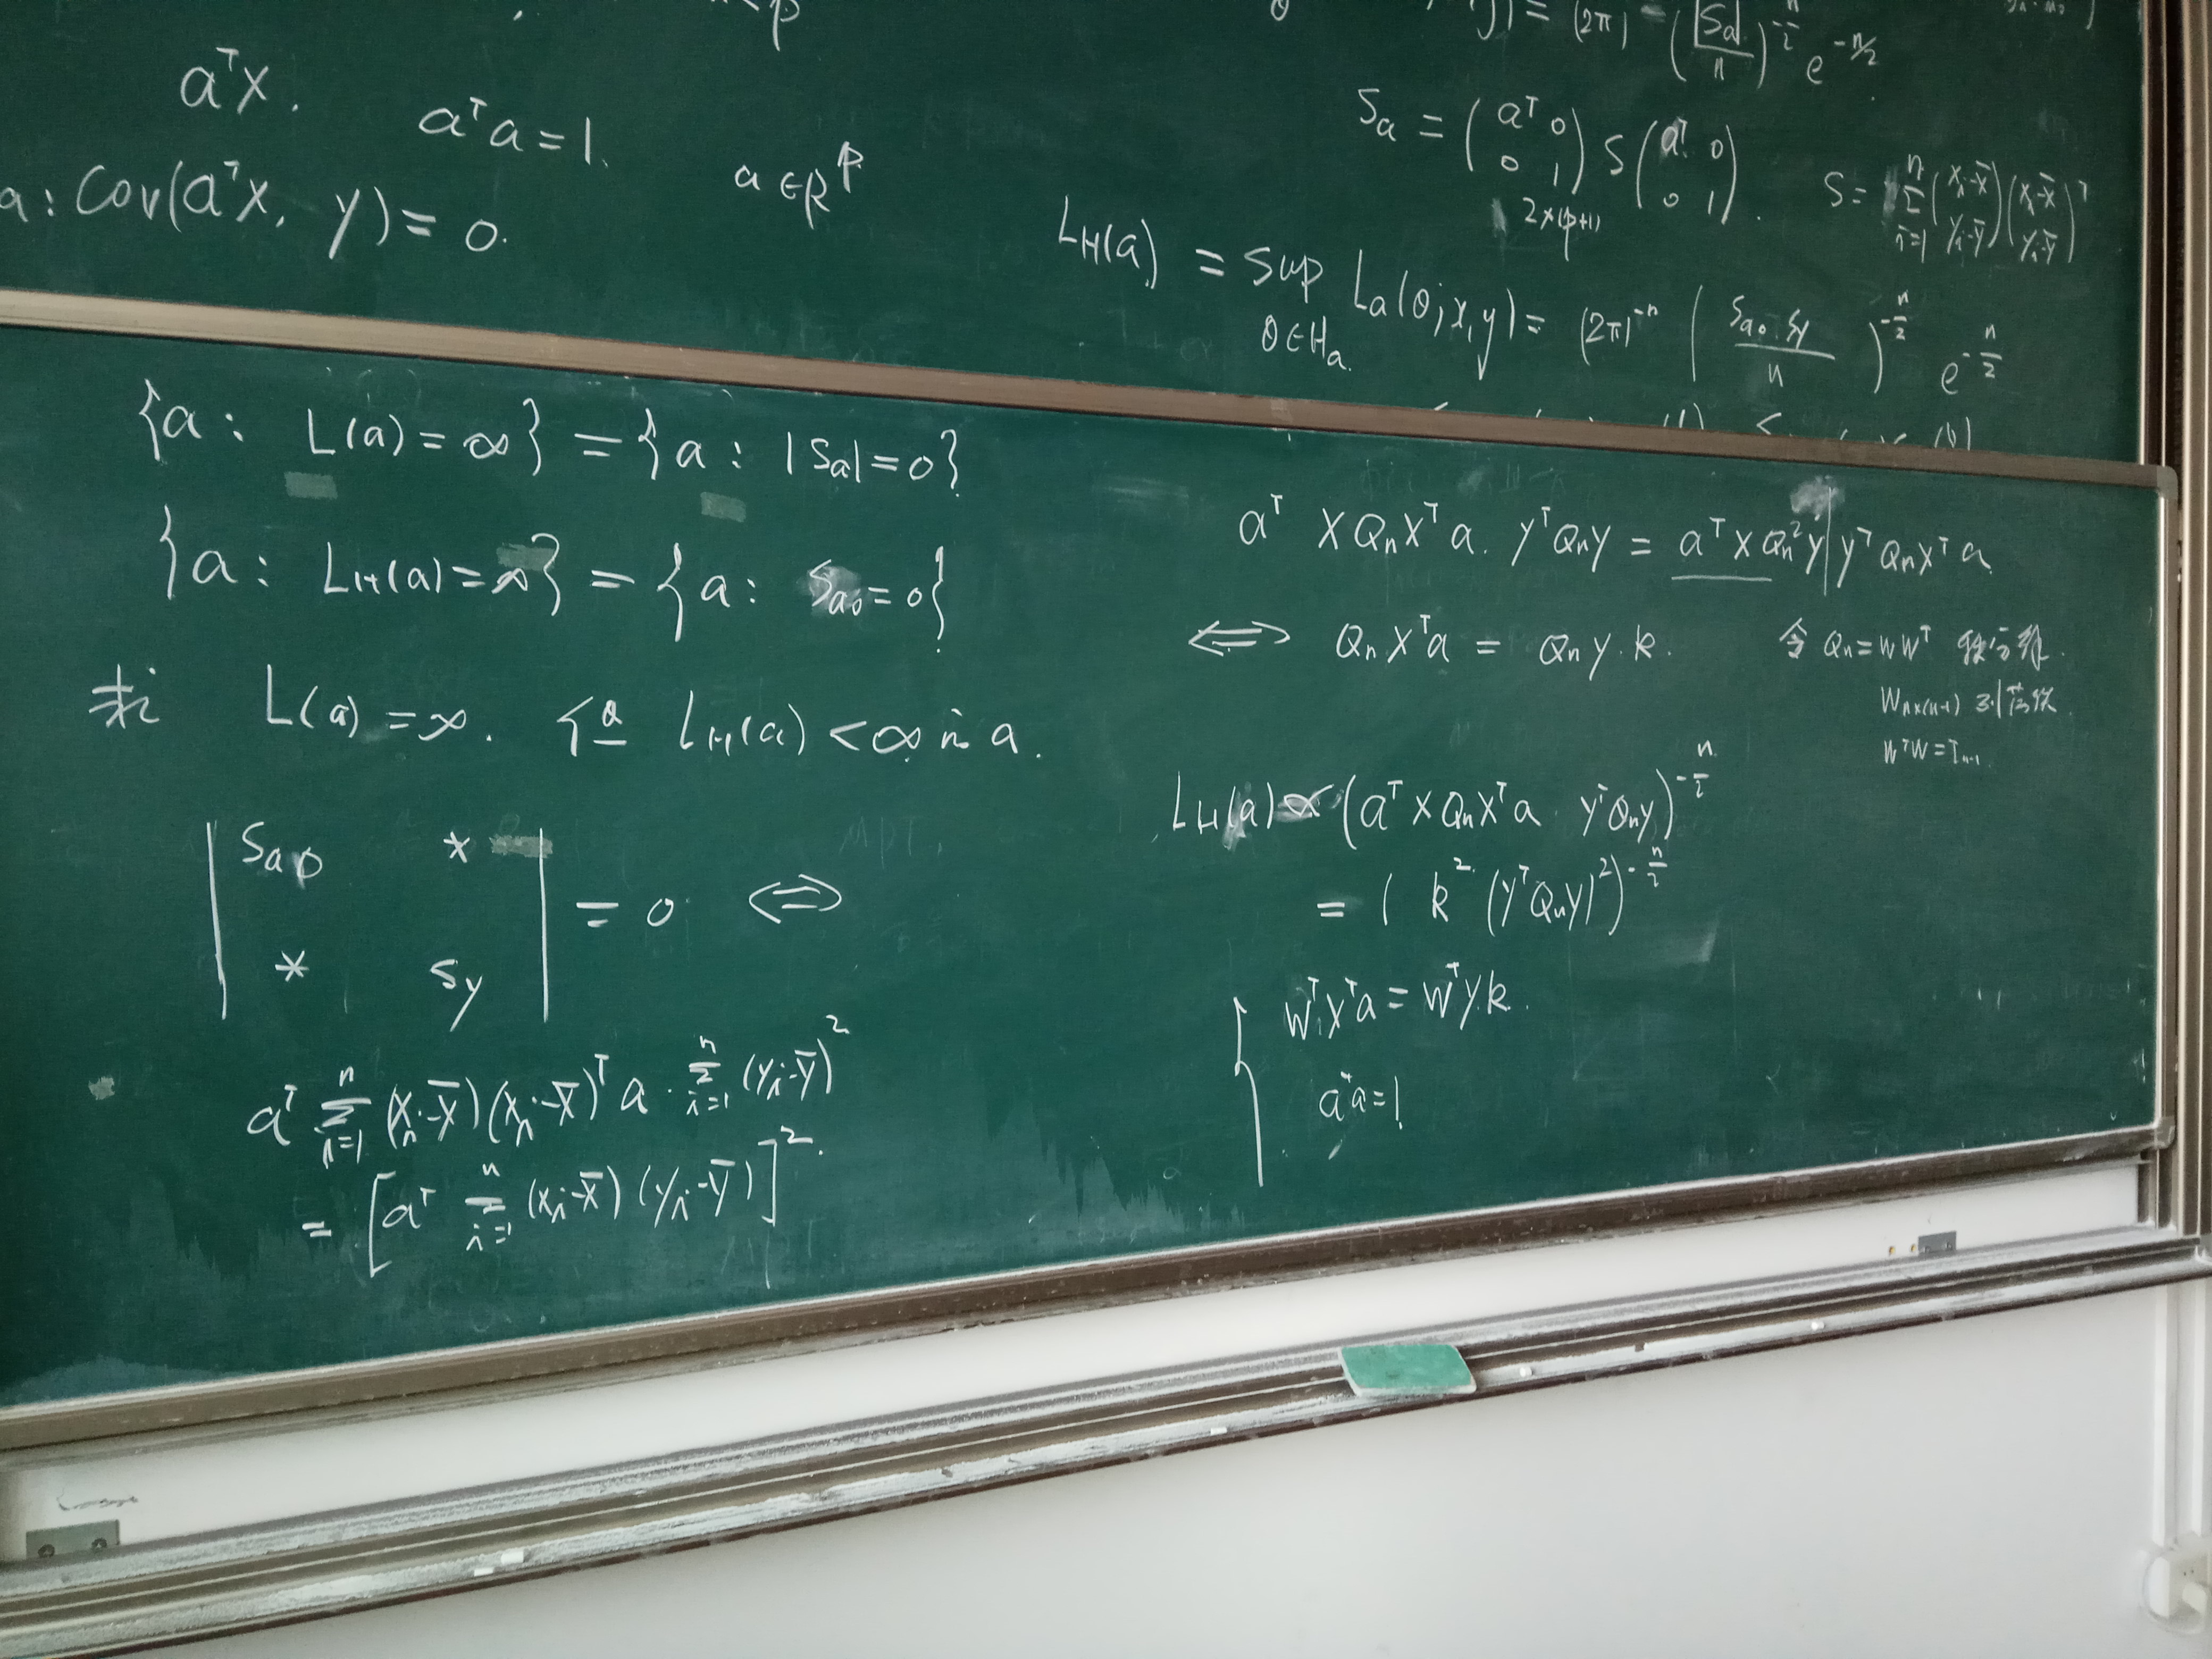 aᵀX. aᵀa=1.
a: Cov(aᵀX, y)=0. a∈Rᵖ
(2π) (|Sa|/n)^{-n/2} e^{-n/2}
Sa = (aᵀ 0; 0 1) S (aᵀ 0; 0 1). S= Σ_{i=1}^{n} (xᵢ-x̄; yᵢ-ȳ)(xᵢ-x̄; yᵢ-ȳ)ᵀ
2×(p+1)
L_H(a) = sup_{θ∈Ha} La(θ;x,y)= (2π)^{-n} (Sa₀·Sy/n)^{-n/2} e^{-n/2}
{a: L(a)=∞} = {a: |Sa|=0}
{a: L_H(a)=∞} = {a: Sa₀=0}
求 L(a)=∞. 但 L_H(a)<∞ 的 a.
|Sa₀ * ; * Sy| = 0 ⟺
aᵀ Σ_{i=1}^{n} (xᵢ-x̄)(xᵢ-x̄)ᵀ a · Σ_{i=1}^{n} (yᵢ-ȳ)²
= [aᵀ Σ_{i=1}^{n} (xᵢ-x̄)(yᵢ-ȳ)]².
aᵀ XQₙXᵀa. yᵀQₙy = aᵀXQₙ²y yᵀQₙXᵀa
⟺ Qₙxᵀa = Qₙy·k. 令 Qₙ=WWᵀ
W_{n×(n-1)} 列
WᵀW=I_{n-1}
L_H(a) ∝ (aᵀXQₙXᵀa · yᵀQₙy)^{-n/2}
= (k² (yᵀQₙy)²)^{-n/2}
{ WᵀXᵀa = Wᵀyk.
aᵀa=1